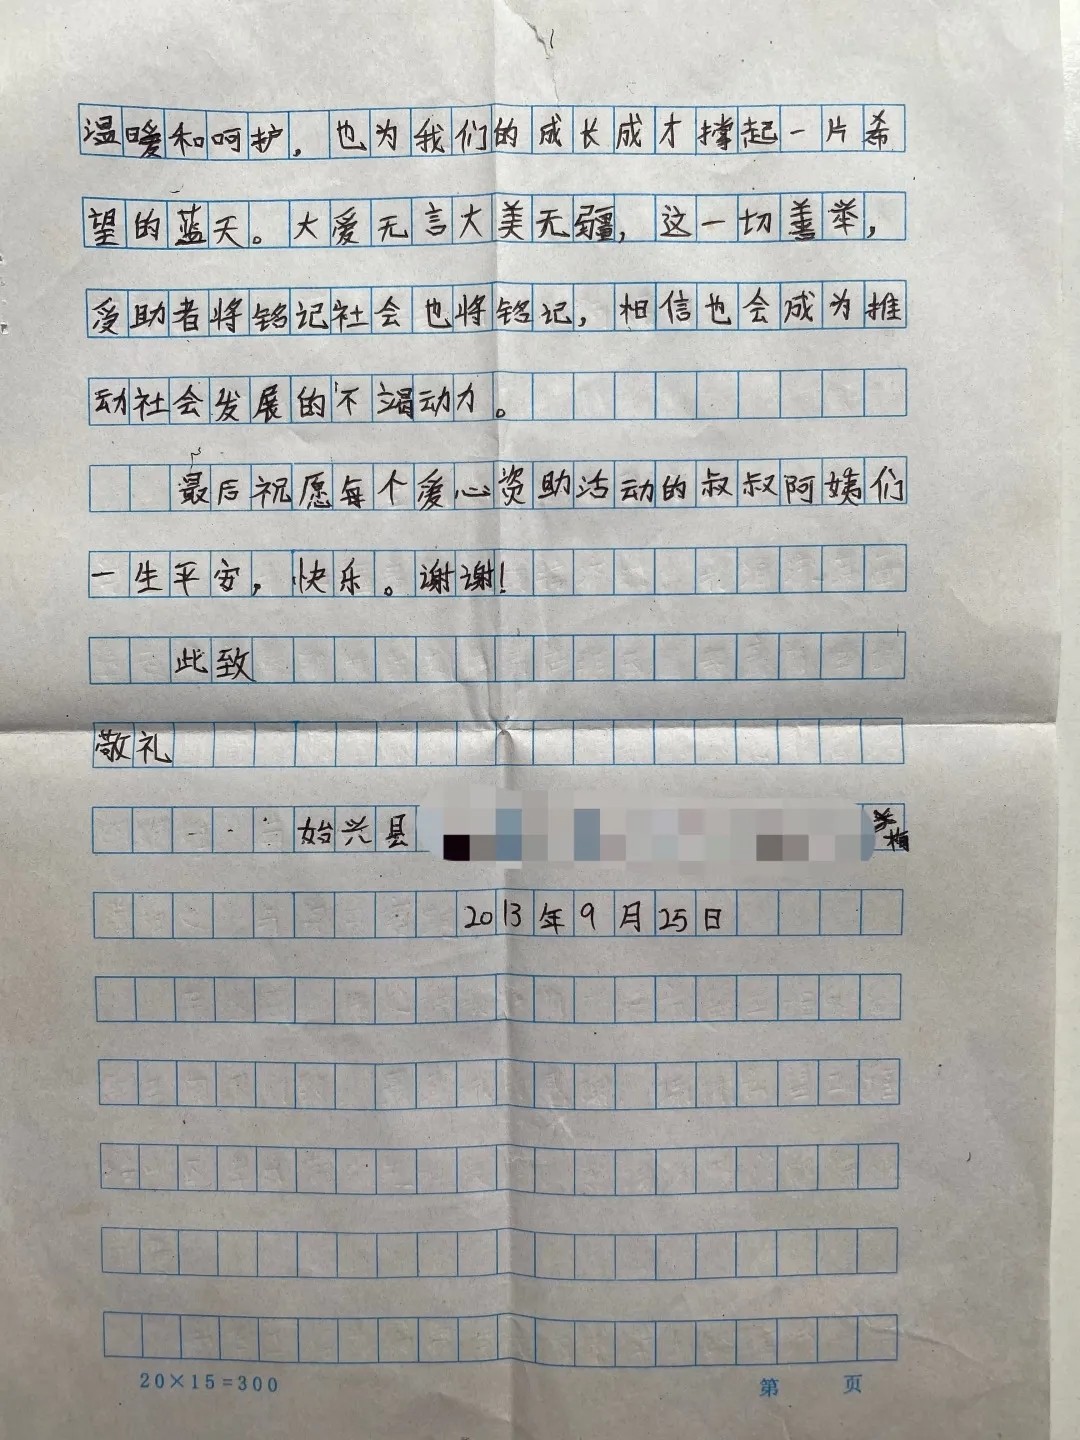 温暖和呵护，也为我们的成长成才撑起一片希
望的蓝天。大爱无言大美无疆，这一切善举，
受助者将铭记社会也将铭记，相信也会成为推
动社会发展的不竭动力。
最后祝愿每个爱心资助活动的叔叔阿姨们
一生平安，快乐。谢谢！
此致
敬礼
始兴县
2013年9月25日
20×15=300
第 页